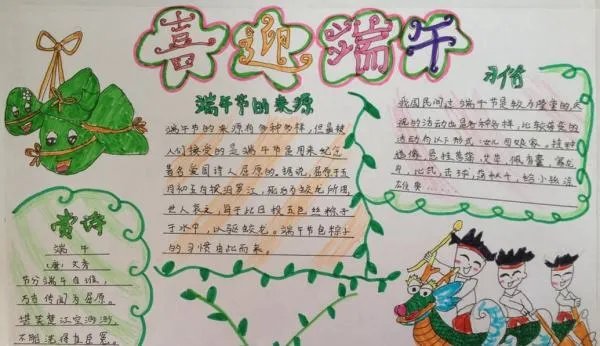 喜迎端午
端午节的来源
端午节的来源有多种多样,但最被
人们接受的是端午节是用来纪念
着名爱国诗人屈原的。据说,屈原于五
月初五自投汨罗江,死后为蛟龙所困,
世人哀之,每于此日投五色丝粽子
于水中,以驱蛟龙。端午节包粽子
的习惯由此而来。
习俗
我国民间过端午节是较为隆重的,庆
祝的活动也是各种各样,比较普遍的
活动有以下形式:女儿回娘家,挂钟
馗像,悬挂菖蒲、艾草,佩香囊,赛龙
舟,比武,击球,荡秋千,给小孩涂
雄黄
赏诗
端午
(唐)文秀
节分端午自谁言,
万古传闻为屈原。
堪笑楚江空渺渺,
不能洗得直臣冤。